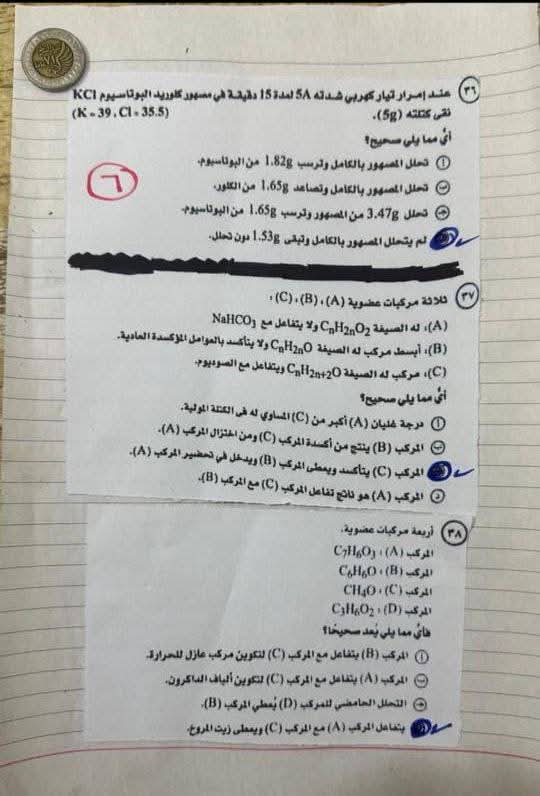 ٣٦ عند إمرار تيار كهربي شدته 5A لمدة 15 دقيقة في مصهور كلوريد البوتاسيوم KCl
نقى كتلته (5g). (K = 39 , Cl = 35.5)
أي مما يلي صحيح؟
أ تحلل المصهور بالكامل وترسب 1.82g من البوتاسيوم.
ب تحلل المصهور بالكامل وتصاعد 1.65g من الكلور.
ج تحلل 3.47g من المصهور وترسب 1.65g من البوتاسيوم.
لم يتحلل المصهور بالكامل وتبقى 1.53g دون تحلل.
٦
٣٧ ثلاثة مركبات عضوية (A) ، (B) ، (C) :
(A): له الصيغة CnH2nO2 ولا يتفاعل مع NaHCO3
(B): أبسط مركب له الصيغة CnH2nO ولا يتأكسد بالعوامل المؤكسدة العادية.
(C): مركب له الصيغة CnH2n+2O ويتفاعل مع الصوديوم.
أي مما يلي صحيح؟
أ درجة غليان (A) أكبر من (C) المساوي له فى الكتلة المولية.
ب المركب (B) ينتج من أكسدة المركب (C) ومن اختزال المركب (A).
المركب (C) يتأكسد ويعطى المركب (B) ويدخل في تحضير المركب (A).
د المركب (A) هو ناتج تفاعل المركب (C) مع المركب (B).
٣٨ أربعة مركبات عضوية.
المركب (A) : C7H6O3
المركب (B) : C6H6O
المركب (C) : CH4O
المركب (D) : C3H6O2
فأي مما يلي يُعد صحيحًا؟
أ المركب (B) يتفاعل مع المركب (C) لتكوين مركب عازل للحرارة.
ب المركب (A) يتفاعل مع المركب (C) لتكوين ألياف الداكرون.
ج التحلل الحامضي للمركب (D) يُعطي المركب (B).
يتفاعل المركب (A) مع المركب (C) ويعطى زيت المروخ.